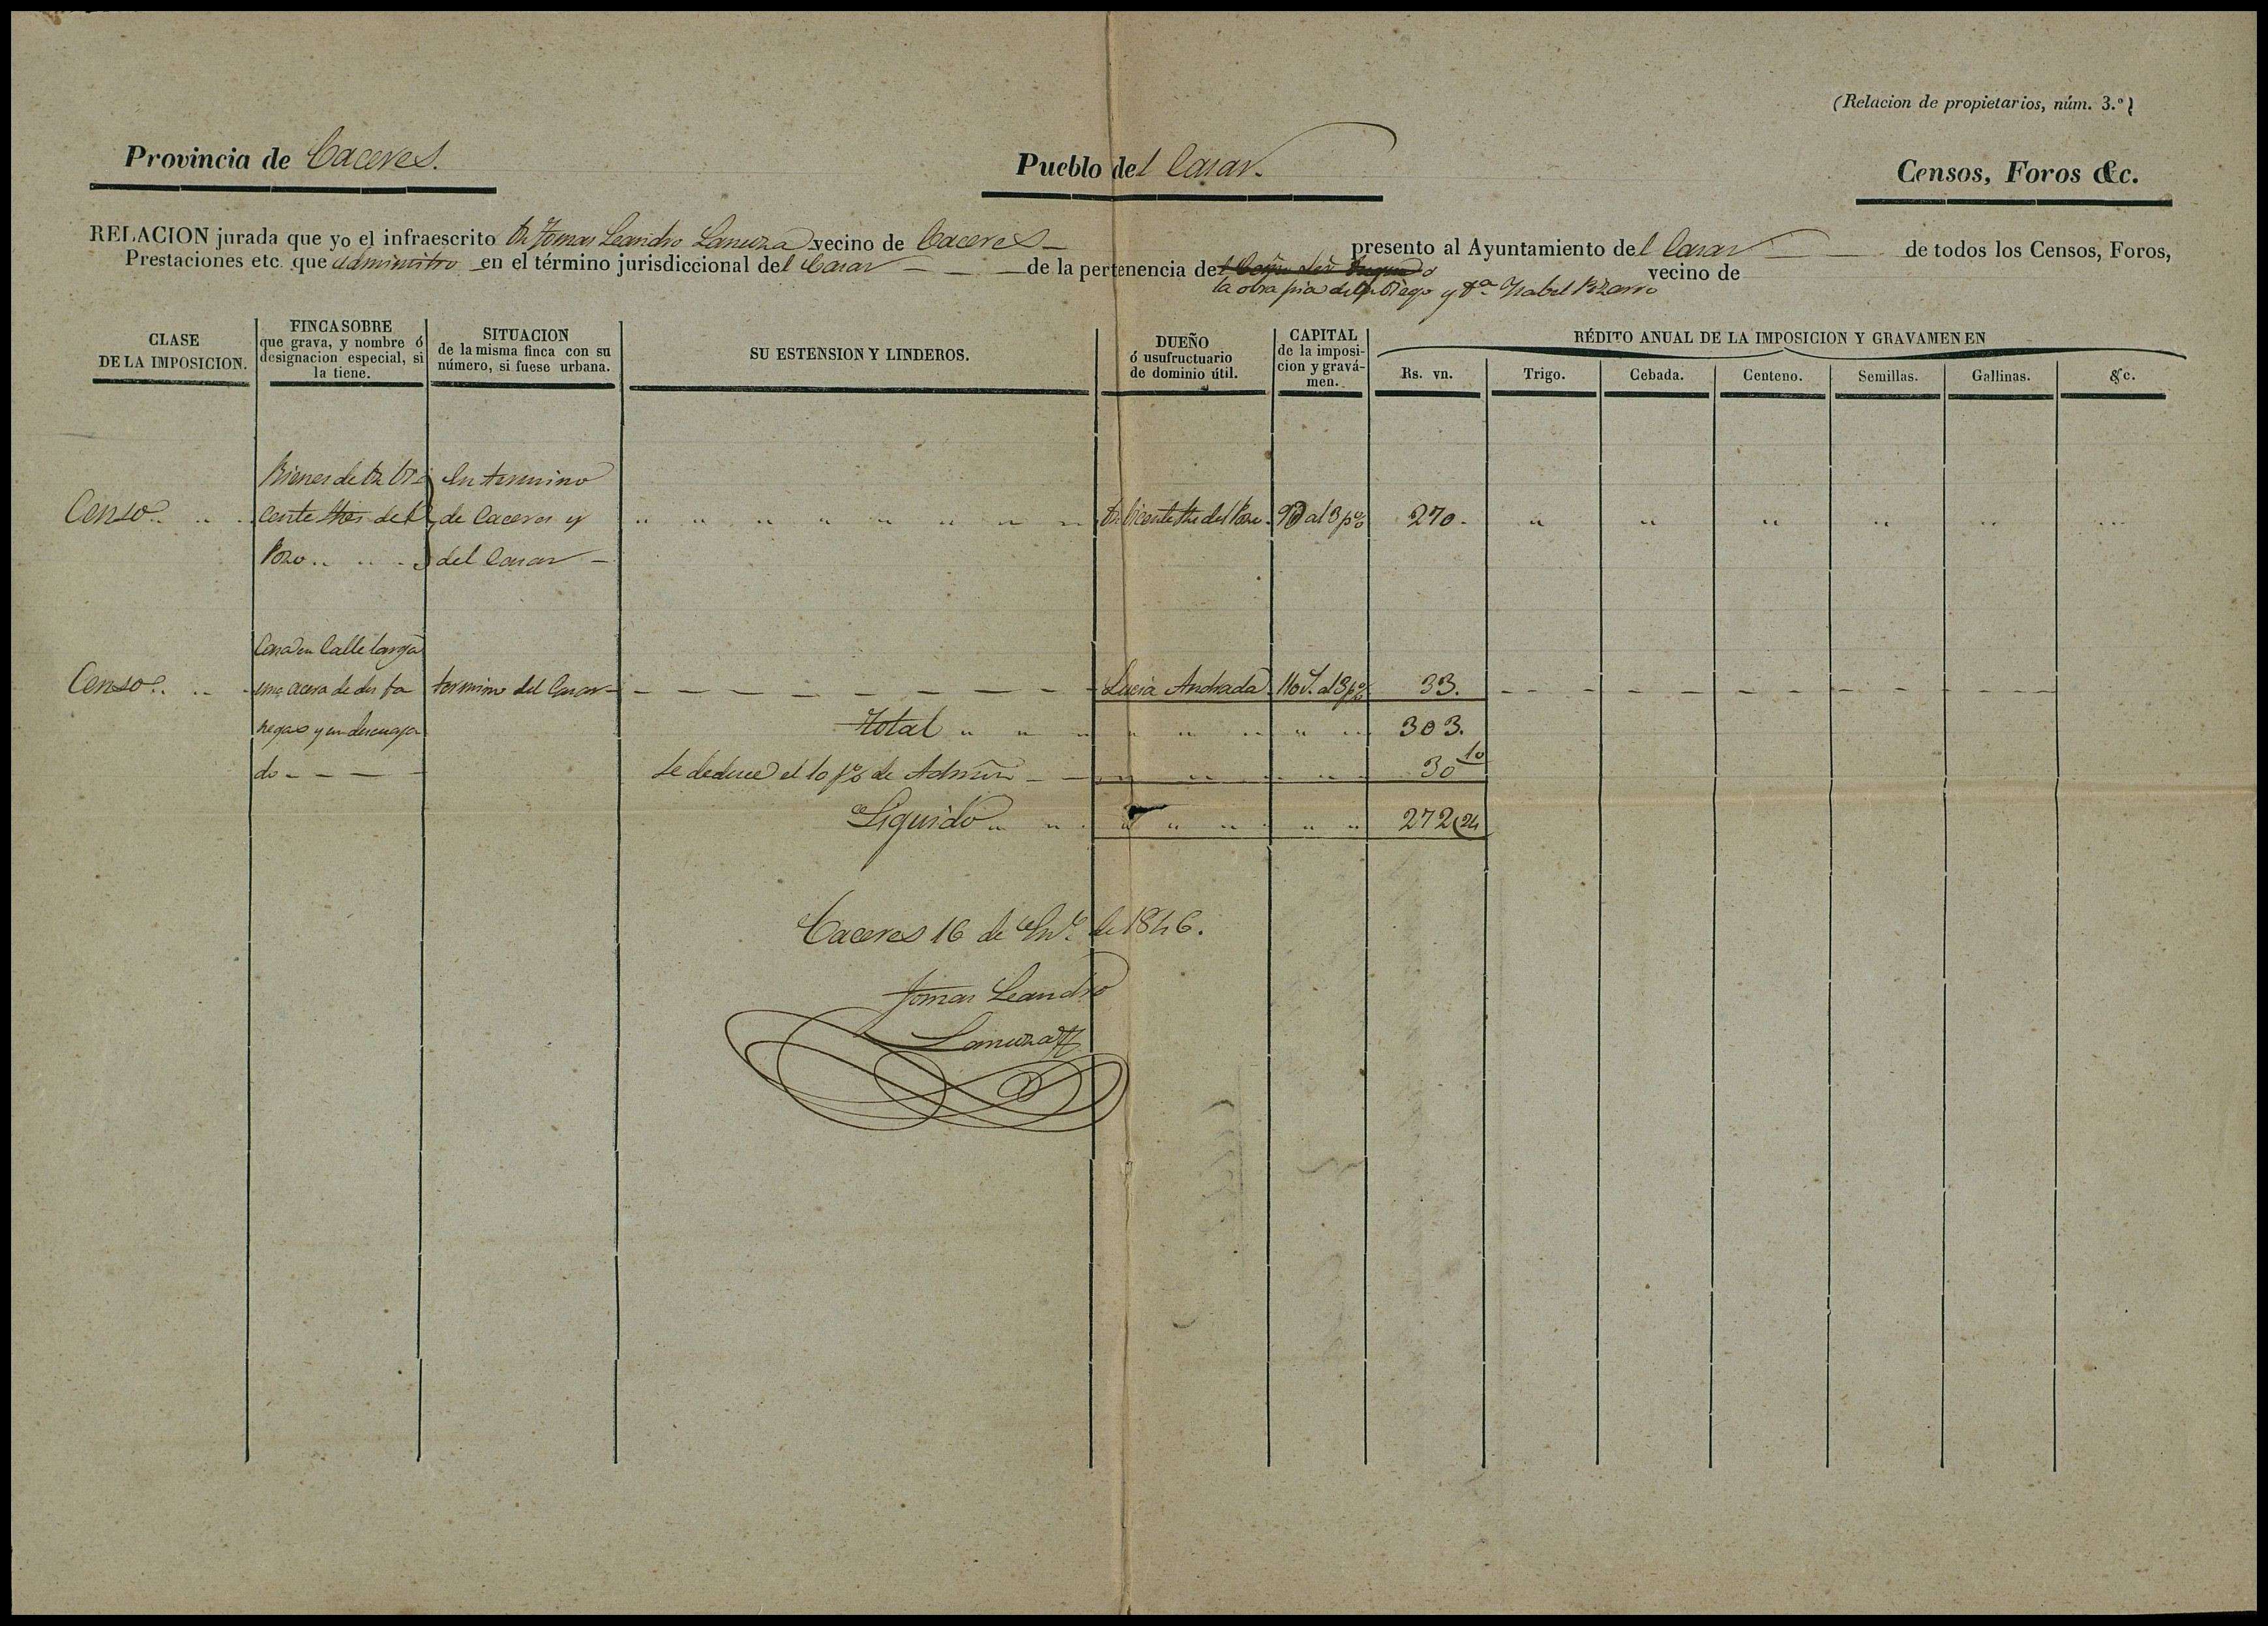 (Relacion de propietarios, núm. 3.º)
Provincia de Caceres.
Pueblo del Casar.
Censos, Foros &c.
RELACION jurada que yo el infraescrito Dn Tomas Leandro Lanuza vecino de Caceres presento al Ayuntamiento del Casar de todos los Censos, Foros,
Prestaciones etc. que administro en el término jurisdiccional del Casar de la pertenencia de vecino de
la obra pia de Dn Diego y Dª Ysabel Pizarro
CLASE
DE LA IMPOSICION.
FINCA SOBRE
que grava, y nombre ó
designacion especial, si
la tiene.
SITUACION
de la misma finca con su
número, si fuese urbana.
SU ESTENSION Y LINDEROS.
DUEÑO
ó usufructuario
de dominio útil.
CAPITAL
de la imposi-
cion y gravá-
men.
RÉDITO ANUAL DE LA IMPOSICION Y GRAVAMEN EN
Rs. vn. Trigo. Cebada. Centeno. Semillas. Gallinas. &c.
Bienes de Dn Vi- En termino
Censo cente de de Caceres y Dn Vicente del Pozo al 3 p% 270.
Pozo del Casar
Casa en Calle larga
Censo una acera de dos fa termino del Casar Lucia Andrada al 3 p% 33.
negas y un descuaja Total 303.
do Se deduce el 10 p% de Admon 30 10
Liquido 272 24
Caceres 16 de Enº de 1846.
Tomas Leandro
Lanuza